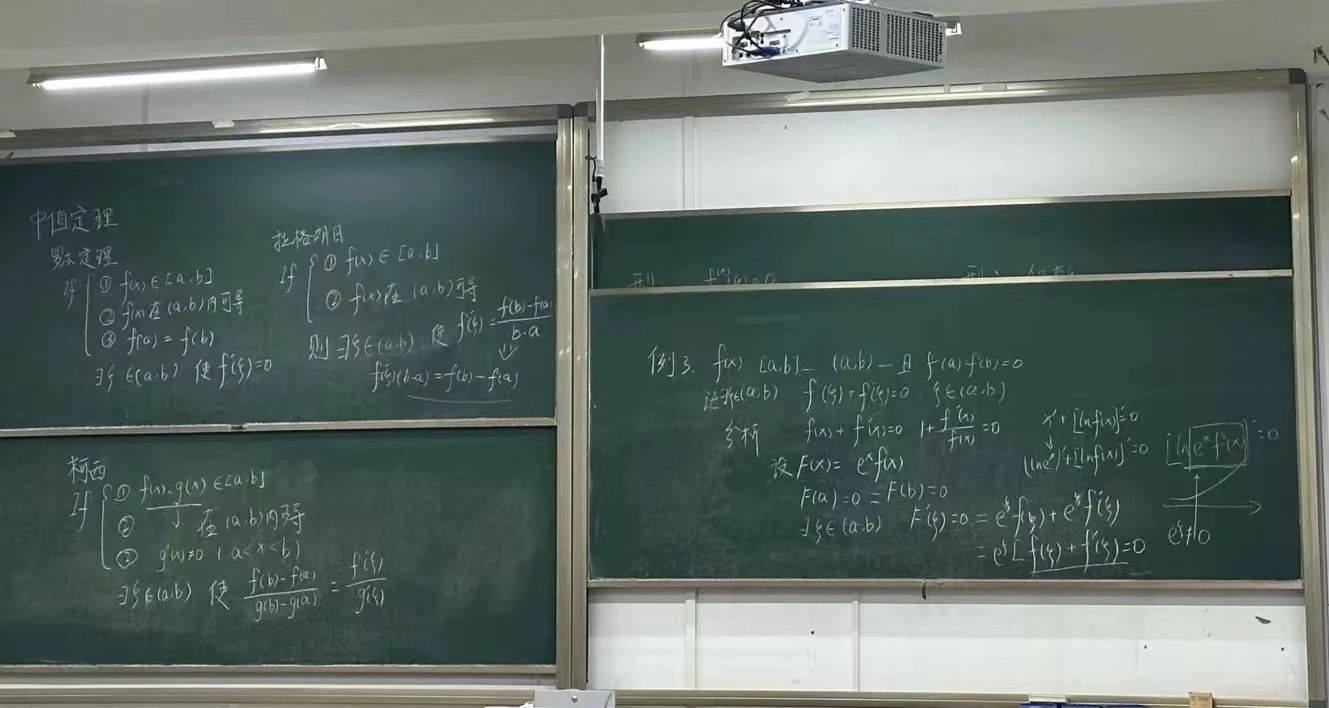 中值定理
罗尔定理
If ① f(x)∈[a,b]
② f(x)在(a,b)内可导
③ f(a)=f(b)
∃ξ∈(a,b) 使f'(ξ)=0
拉格朗日
If ① f(x)∈[a,b]
② f(x)在(a,b)可导
则∃ξ∈(a,b),使f'(ξ)=\frac{f(b)-f(a)}{b-a}
↓
f'(ξ)(b-a)=f(b)-f(a)
柯西
If ① f(x),g(x)∈[a,b]
② 在(a,b)内可导
③ g'(x)≠0 (a<x<b)
∃ξ∈(a,b) 使 \frac{f(b)-f(a)}{g(b)-g(a)}=\frac{f'(ξ)}{g'(ξ)}
例3. f(x) [a,b]_ (a,b)_且f(a)=f(b)=0
证∃ξ∈(a,b) f(ξ)+f'(ξ)=0. ξ∈(a,b)
分析 f(x)+f'(x)=0 1+\frac{f'(x)}{f(x)}=0 x'+[lnf(x)]'=0
↓
(lne^x)'+[lnf(x)]'=0 [ln e^x f(x)]'=0
设F(x)=e^x f(x)
F(a)=0=F(b)=0
∃ξ∈(a,b) F'(ξ)=0.=e^ξ f(ξ)+e^ξ f'(ξ)
=e^ξ[f(ξ)+f'(ξ)=0
e^ξ≠0